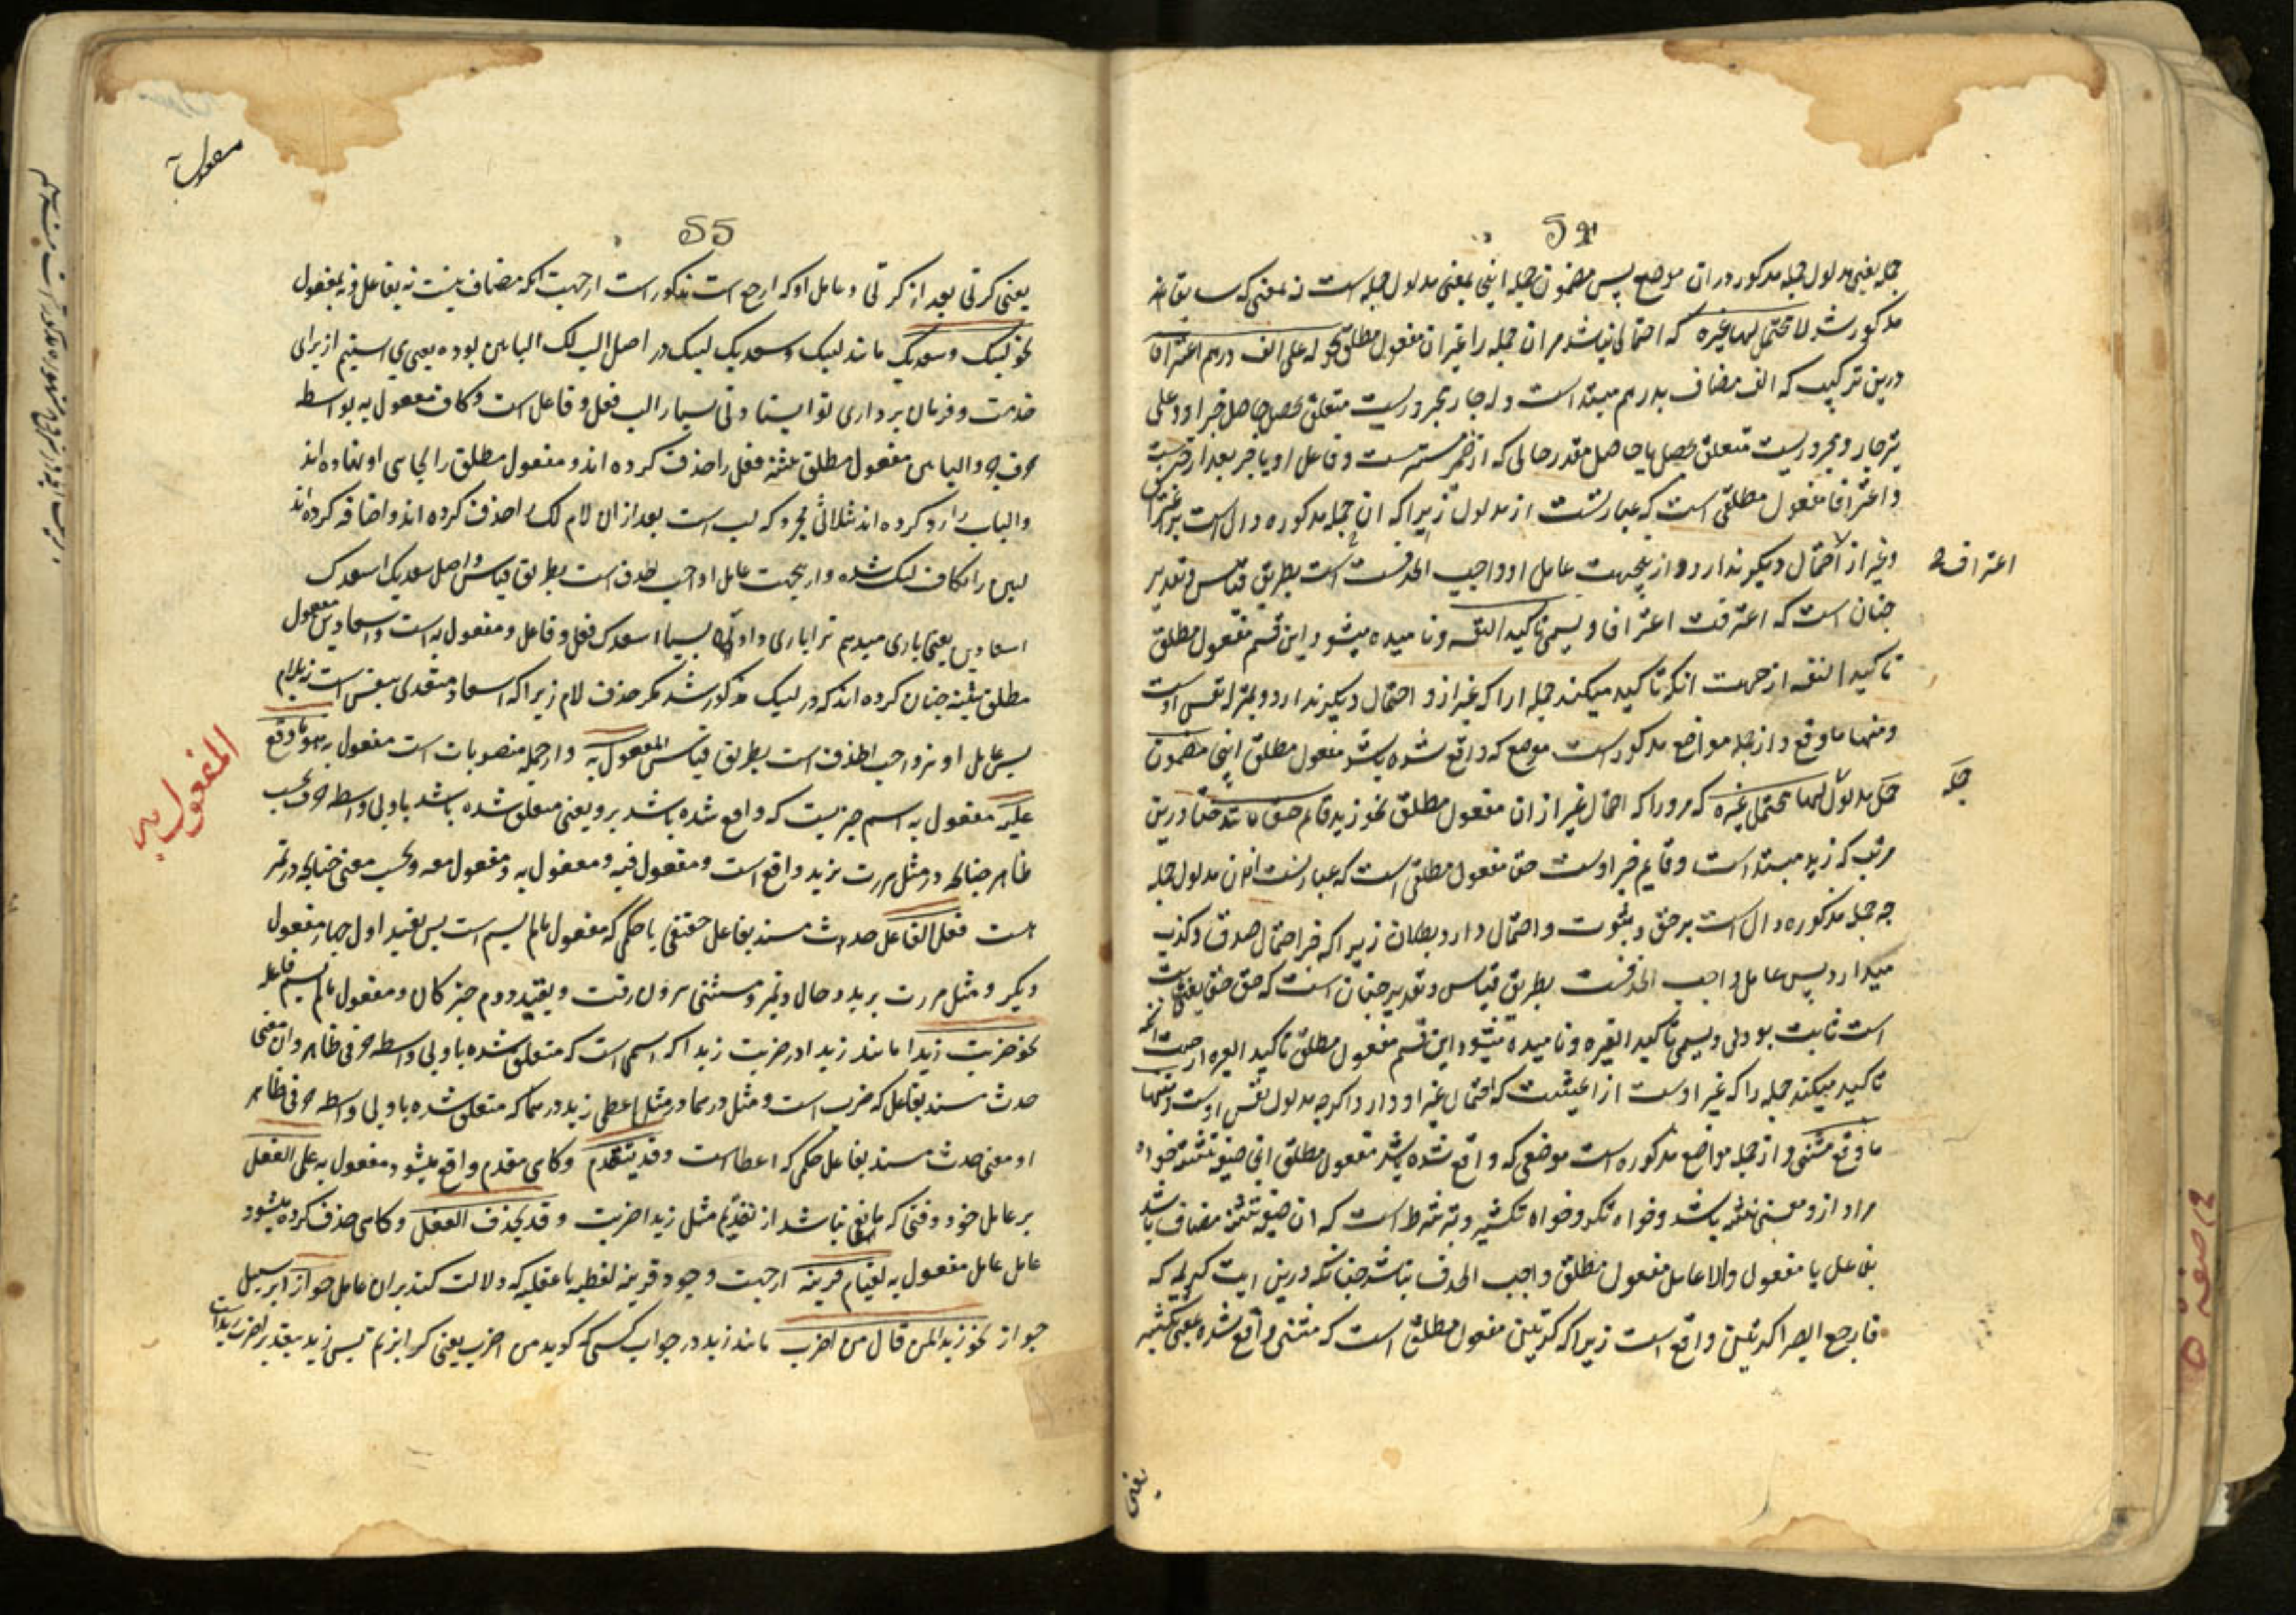 54
جمله یعنی مدلول جمله مذکور در ان موضع پس مضمون جمله اینجا بمعنی مدلول جمله است نه بمعنی که سابق
مذکور شد لا محتمل لها غیره که احتمالی نباشد مر ان جمله را غیر ان مفعول مطلق نحو له علی الف درهم اعترافا
درین ترکیب که الف مضاف بدرهم مبتدا است و له جار مجروریست متعلق بحصل یا حاصل خبر او و علی
جار و مجروریست متعلق بحصل یا حاصل مقدر حالی که از ضمیر مستتر است و فاعل او یا خبر بعد از خبر
و اعترافا مفعول مطلقی است که عبارتست از مدلول زیرا که ان جمله مذکوره دال است بر اعتراف
وغیر از احتمال دیگر ندارد و از ینجهت عامل او واجب الحذفست بطریق قیاس و تقدیر
چنان است که اعترفت اعترافا و یسمی تاکیدا لنفسه و نامیده میشود این قسم مفعول مطلق
تاکیدا لنفسه از جهت انکه تاکید میکند جمله را که غیر ازو احتمال دیگر ندارد و بمنزله نفس اوست
و منها ما وقع و از جمله مواضع مذکور است موضع که واقع شده باشد مفعول مطلق اینجا مضمون
جمله مدلول لها محتمل غیره که مرورا که احتمال غیر از ان مفعول مطلق نحو زید قائم حقا مانند حقا درین
مرتب که زید مبتدا است و قایم خبر اوست حقا مفعول مطلقی است که عبارتست ازان مدلول جمله
چه جمله مذکوره دال است بر حق و ثبوت و احتمال دارد بطلان زیرا که خبر احتمال صدق و کذب
میدارد پس عامل او واجب الحذفست بطریق قیاس و تقدیر چنان است که حق حقا یعنی
است ثابت بودنی و یسمی تاکیدا لغیره و نامیده میشود این قسم مفعول مطلق تاکیدا لغیره از جهت انکه
تاکید میکند جمله را که غیر اوست از حیثیت که احتمال غیر او دارد اگرچه مدلول نفس اوست و منها
ما وقع مثنی و از جمله مواضع مذکوره است موضعی که واقع شده باشد مفعول مطلق اینجا صیغه تثنیه خواه
مراد ازو معنی تثنیه باشد و خواه تکرر و خواه تکثیر و شرط است که ان صیغه تثنیه مضاف باشد
بفاعل یا مفعول والا عامل مفعول مطلق واجب الحذف نباشد چنانکه درین ایت کریمه که
فارجع البصر کرتین واقع است زیرا که کرتین مفعول مطلق است که مثنی واقع شده بمعنی تکثیر
اعتراف
جمله
یعنی
55
یعنی کرتی بعد از کرتی و عامل او که ارجع است مذکور است از جهت انکه مضاف نیست نه بفاعل و نه بمفعول
نحو لبیک و سعدیک مانند لبیک و سعدیک لبیک در اصل الب لک البابین بوده یعنی می ایستیم از برای
خدمت و فرمان برداری تو ایستادنی بسیار الب فعل و فاعل است و کاف مفعول به بواسطه
حرف جر و البابین مفعول مطلق مثنی فعل را حذف کرده اند و مفعول مطلق را بجای او نهاده اند
و الباب را رد کرده اند بثلاثی مجرد که لب است بعد از ان لام لک را حذف کرده اند و اضافه کرده اند
لبین را بکاف لبیک شده و از ینجهت عامل او واجب الحذف است بطریق قیاس و اصل سعدیک اسعدک
اسعادین یعنی یاری میدهم ترا یاری دادنی بسیار اسعدک فعل و فاعل و مفعول به است و اسعادین مفعول
مطلق تثنیه چنان کرده اند که در لبیک مذکور شد مگر حذف لام زیرا که اسعاد متعدی بنفس است
پس عامل او نیز واجب الحذف است بطریق قیاس المفعول به و از جمله منصوبات است مفعول به هو ما وقع
علیه مفعول به اسم چیزیست که واقع شده باشد برو یعنی متعلق شده باشد باو بی واسطه حرف بحسب
ظاهر چنانچه در مثل مررت بزید واقع است و مفعول فیه و مفعول له و مفعول معه و بحسب معنی چنانچه در تمیز
است فعل الفاعل حدث مسند بفاعل حقیقی یا حکمی که مفعول مالم یسم است پس بقید اول چهار مفعول
دیگر و مثل مررت بزید و حال و تمیز و مستثنی بیرون رفت و بقید دوم خبر کان و مفعول مالم یسم فاعله
نحو ضربت زیدا مانند زیدا در ضربت زیدا که اسمی است که متعلق شده باو بی واسطه حرفی ظاهر و ان معنی
حدث مسند بفاعل که ضرب است و مثل درهما در مثل اعطی زید درهما که متعلق شده باو بی واسطه حرفی ظاهر
او معنی حدث مسند بفاعل حکمی که اعطا است و قد یتقدم و کاهی مقدم واقع میشود مفعول به علی الفعل
بر عامل خود وقتی که مانعی نباشد از تقدیم مثل زیدا ضربت و قد یحذف الفعل و کاهی حذف کرده میشود
عامل عامل مفعول به لقیام قرینة از جهت وجود قرینه لفظیه یا عقلیه که دلالت کند بران عامل جوازا بر سبیل
جواز نحو زیدا لمن قال من اضرب مانند زید در جواب کسی که گوید من اضرب یعنی کرا بزنم پس زید بتقدیر اضرب زیدا است
المفعول به
مفعول به